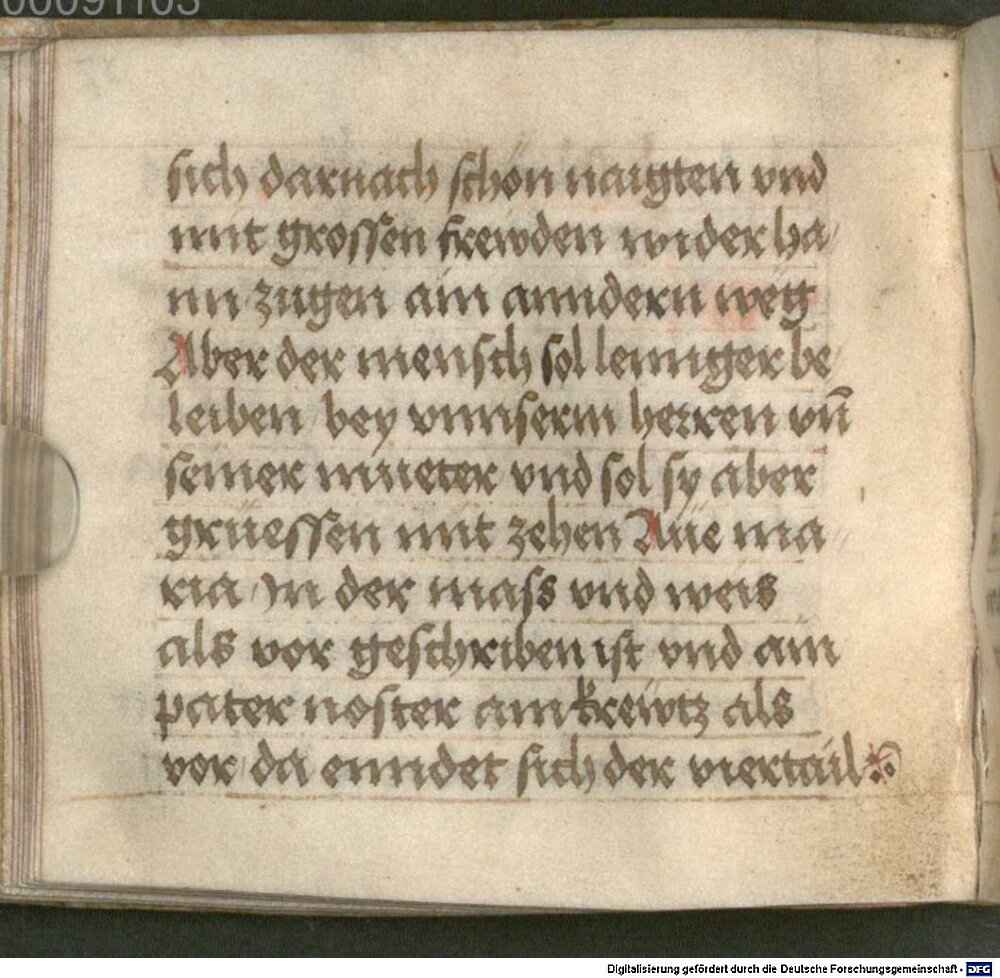 00091103
sich darnach schon naigten vnd
mit grossen frewden wider ha/
im zugen ain anndern weg
Aber der mensch sol lenniger be/
leiben bey vnnserm herren vn̄
seiner mueter vnd sol sy aber
grüessen mit zehen Aue ma//
ria / In der mass vnd weis
als vor geschriben ist vnd ain
pater noster ain krewtz als
vor da enndet sich der viertail
Digitalisierung gefördert durch die Deutsche Forschungsgemeinschaft - DFG